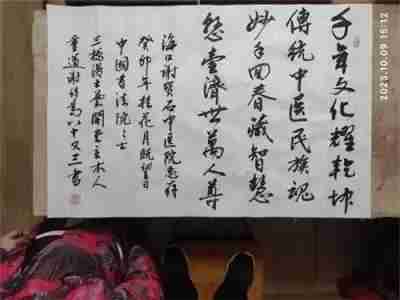 千年文化耀乾坤
傳統中医民族魂
妙手回春藏智慧
悬壺濟世萬人尊
海口謝寶石中医院惠存
癸卯年桂花月既望日
中國書法院士
主木人
八十又三書
2023.10.09 15:12